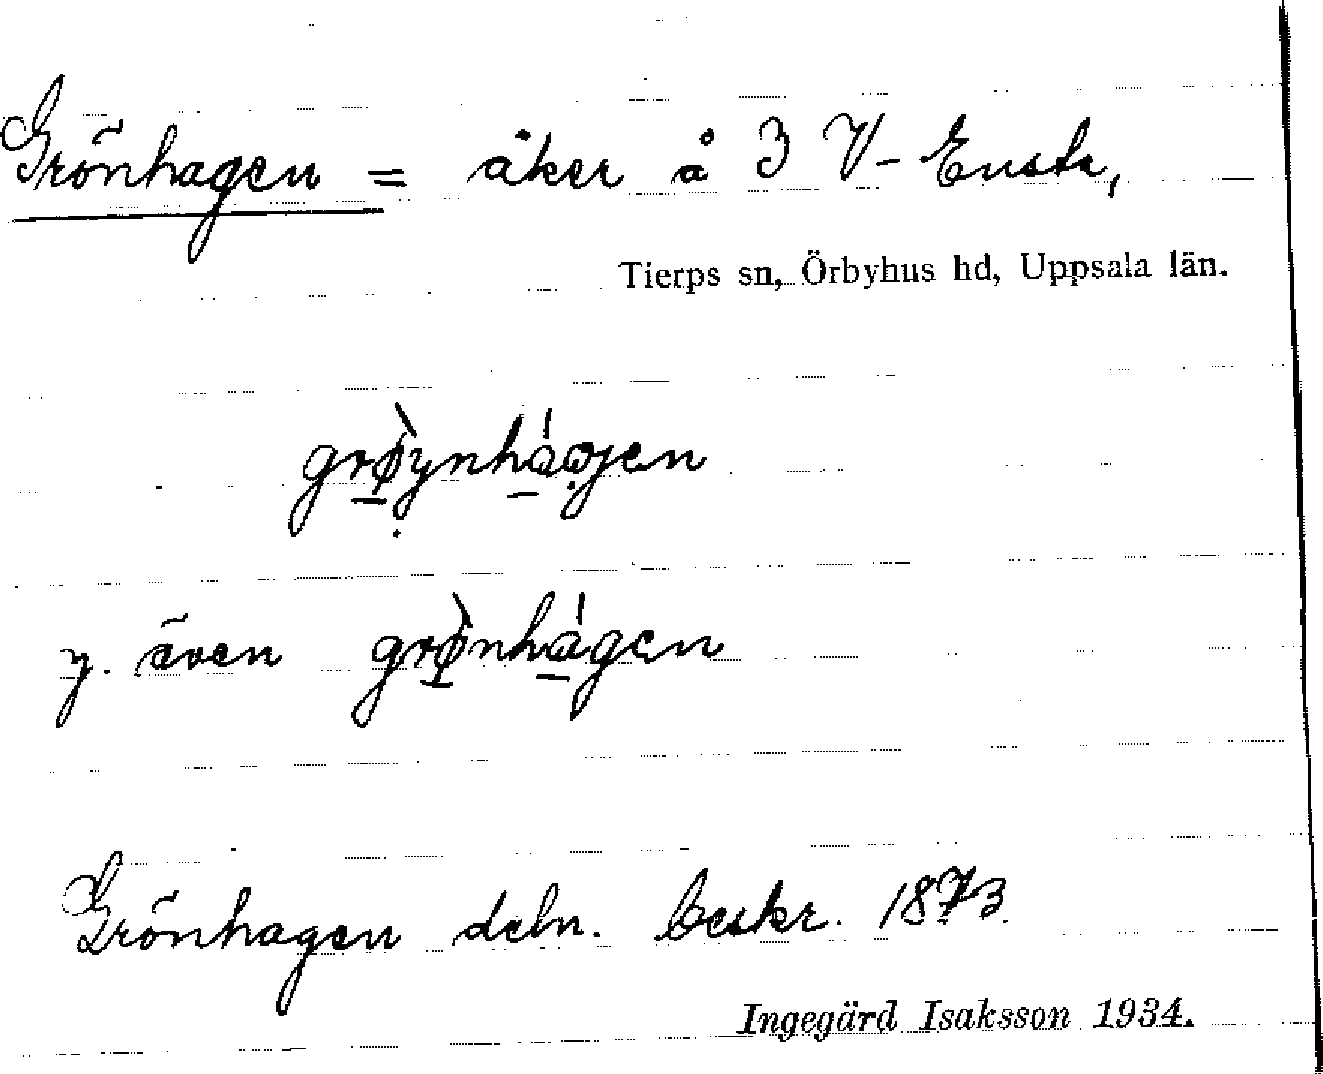 Grönhagen = åker å 3 V-Ensta,
Tierps sn, Örbyhus hd, Uppsala län.
grø̀ynhágjen
y. även grø̀nhágen
Grönhagen deln. beskr. 1873.
Ingegärd Isaksson 1934.